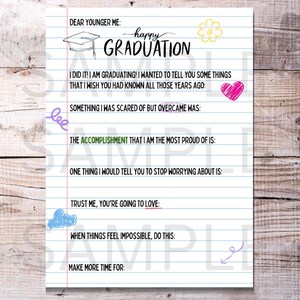 DEAR YOUNGER ME:
happy
GRADUATION
I DID IT! I AM GRADUATING! I WANTED TO TELL YOU SOME THINGS
THAT I WISH YOU HAD KNOWN ALL THOSE YEARS AGO:
SOMETHING I WAS SCARED OF BUT OVERCAME WAS:
THE ACCOMPLISHMENT THAT I AM THE MOST PROUD OF IS:
ONE THING I WOULD TELL YOU TO STOP WORRYING ABOUT IS:
TRUST ME, YOU'RE GOING TO LOVE:
WHEN THINGS FEEL IMPOSSIBLE, DO THIS:
MAKE MORE TIME FOR:
SAMPLE
SAMPLE
SAMPLE